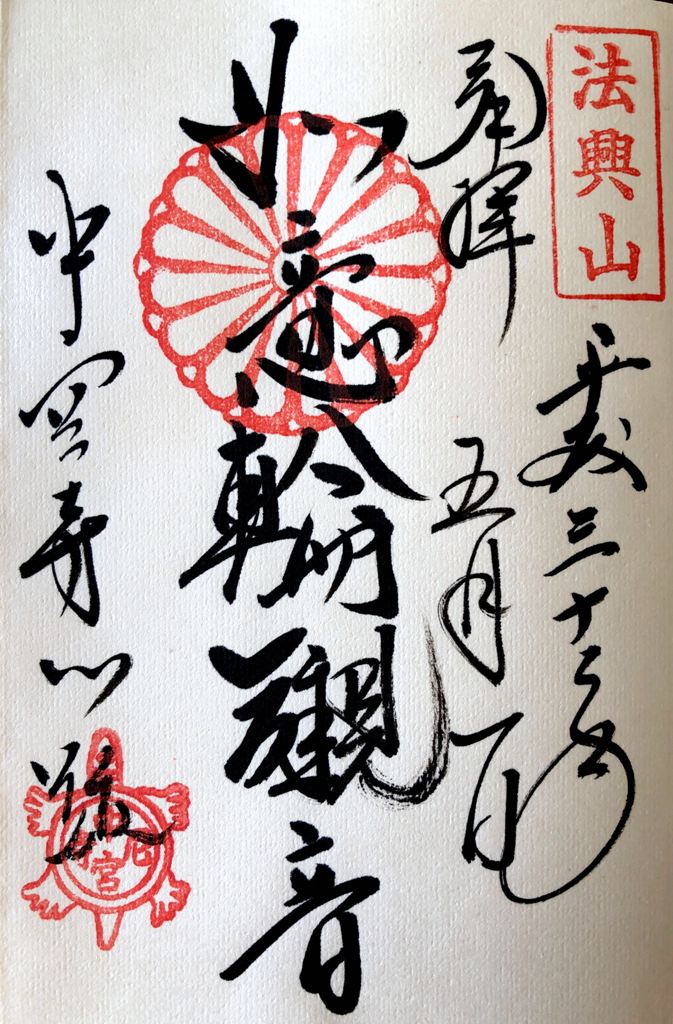 法興山
平成三十年
奉拝
五月一日
如意輪観音
中宮寺門跡